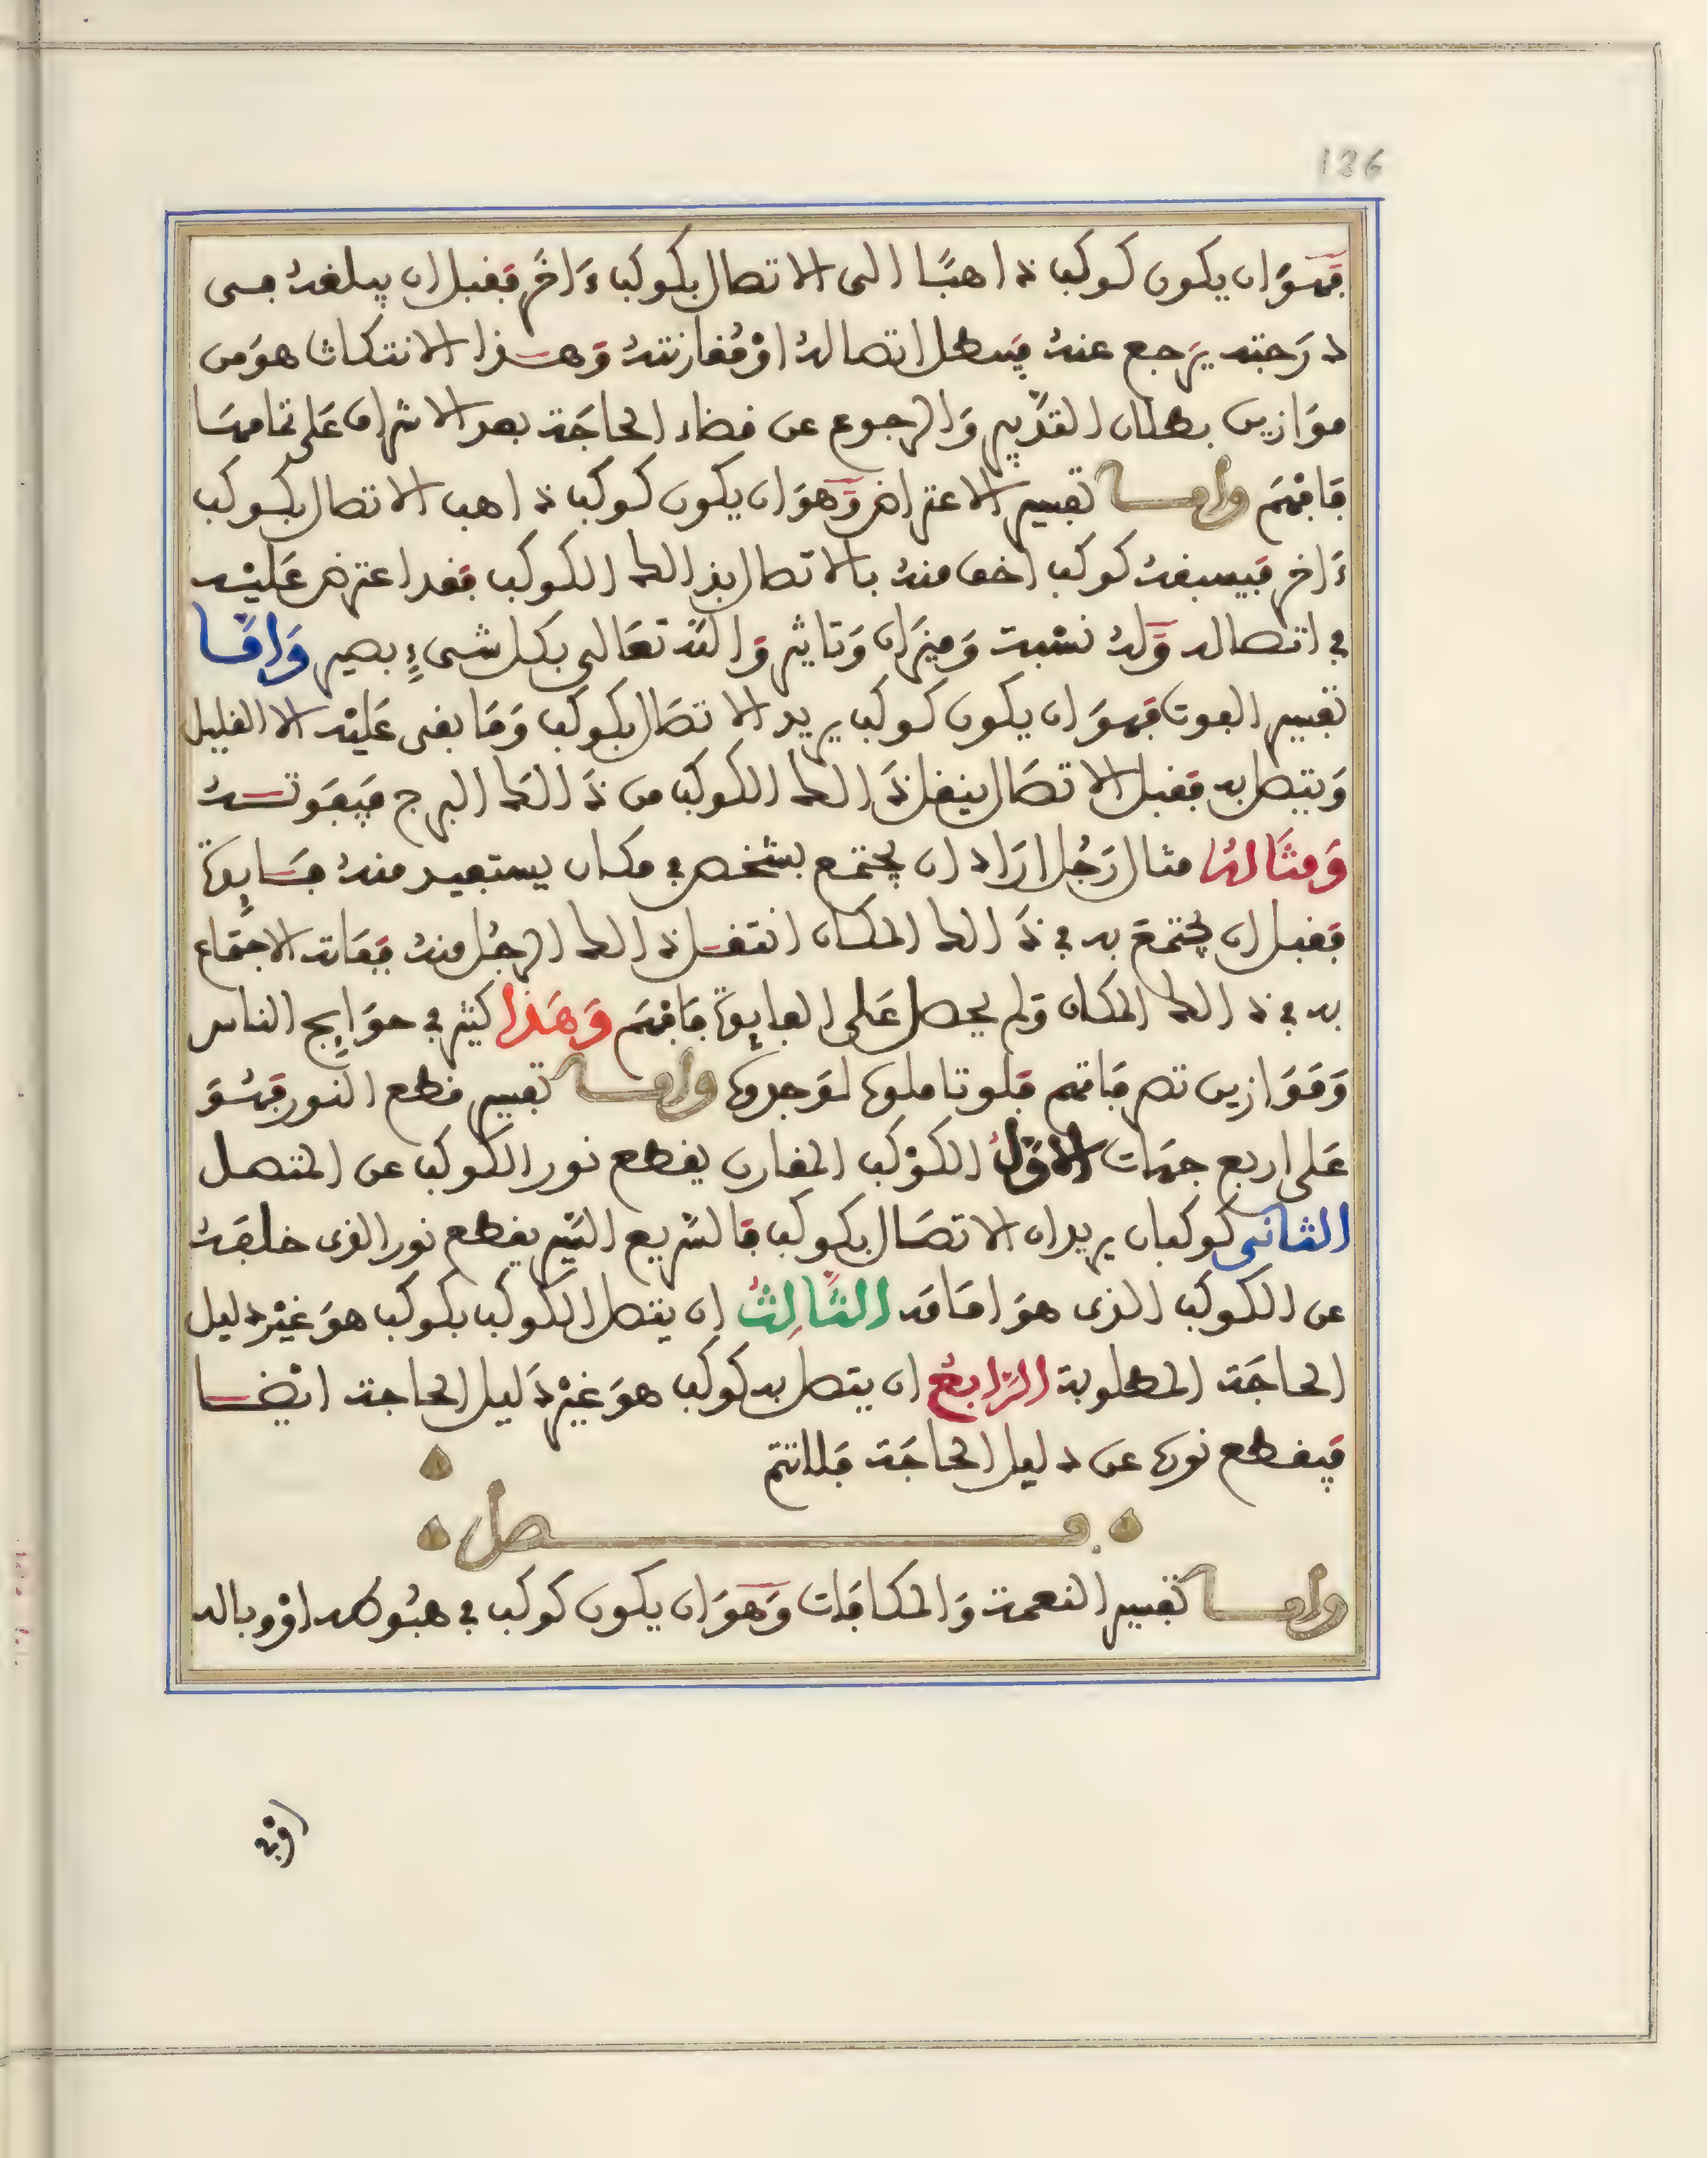 136
فهو ان يكون كوكب ذاهبا الى الاتصال بكوكب ءاخر فقبل ان يبلغه في
درجته يرجع عنه فيبطل اتصاله او مقارنته وهذا الانتكاث هو من
موازين بطلان التدبير والرجوع عن قضاء الحاجة بعد الاشراف على تمامها
فافهم واما تفسير الاعتراض وهو ان يكون كوكب ذاهب الاتصال بكوكب
ءاخر فيسبقه كوكب اخف منه بالاتصال بذالك الكوكب فقد اعترض عليه
في اتصاله وله نسبة وميزان وتاثير والله تعالى بكل شيء بصير واما
تفسير الفوت فهو ان يكون كوكب يريد الاتصال بكوكب وما بقى عليه الا القليل
ويتصل به فقبل الاتصال ينتقل ذالك الكوكب من ذالك البرج فيفوته
ومثاله مثال رجل اراد ان يجتمع بشخص في مكان يستفيد منه فايدة
فقبل ان يجتمع به في ذالك المكان انتقل ذالك الرجل منه ففاته الاجتماع
به في ذالك المكان ولم يحصل على الفايدة فافهم وهذا كثير في حوايج الناس
وموازين تصرفاتهم فلو تاملوها لوجدوها واما تفسير قطع النور فهو
على اربع جهات الاول الكوكب المقارن يقطع نور الكوكب عن المتصل
الثاني كوكبان يريدان الاتصال بكوكب فالسريع السير يقطع نور الذى خلفه
عن الكوكب الذى هو امامه الثالث ان يتصل الكوكب بكوكب هو غير دليل
الحاجة المطلوبة الرابع ان يتصل به كوكب هو غير دليل الحاجة ايضا
فيقطع نورها عن دليل الحاجة فلا تتم
فصل
واما تفسير النعمة والمكافات وهو ان يكون كوكب في هبوطه او وباله